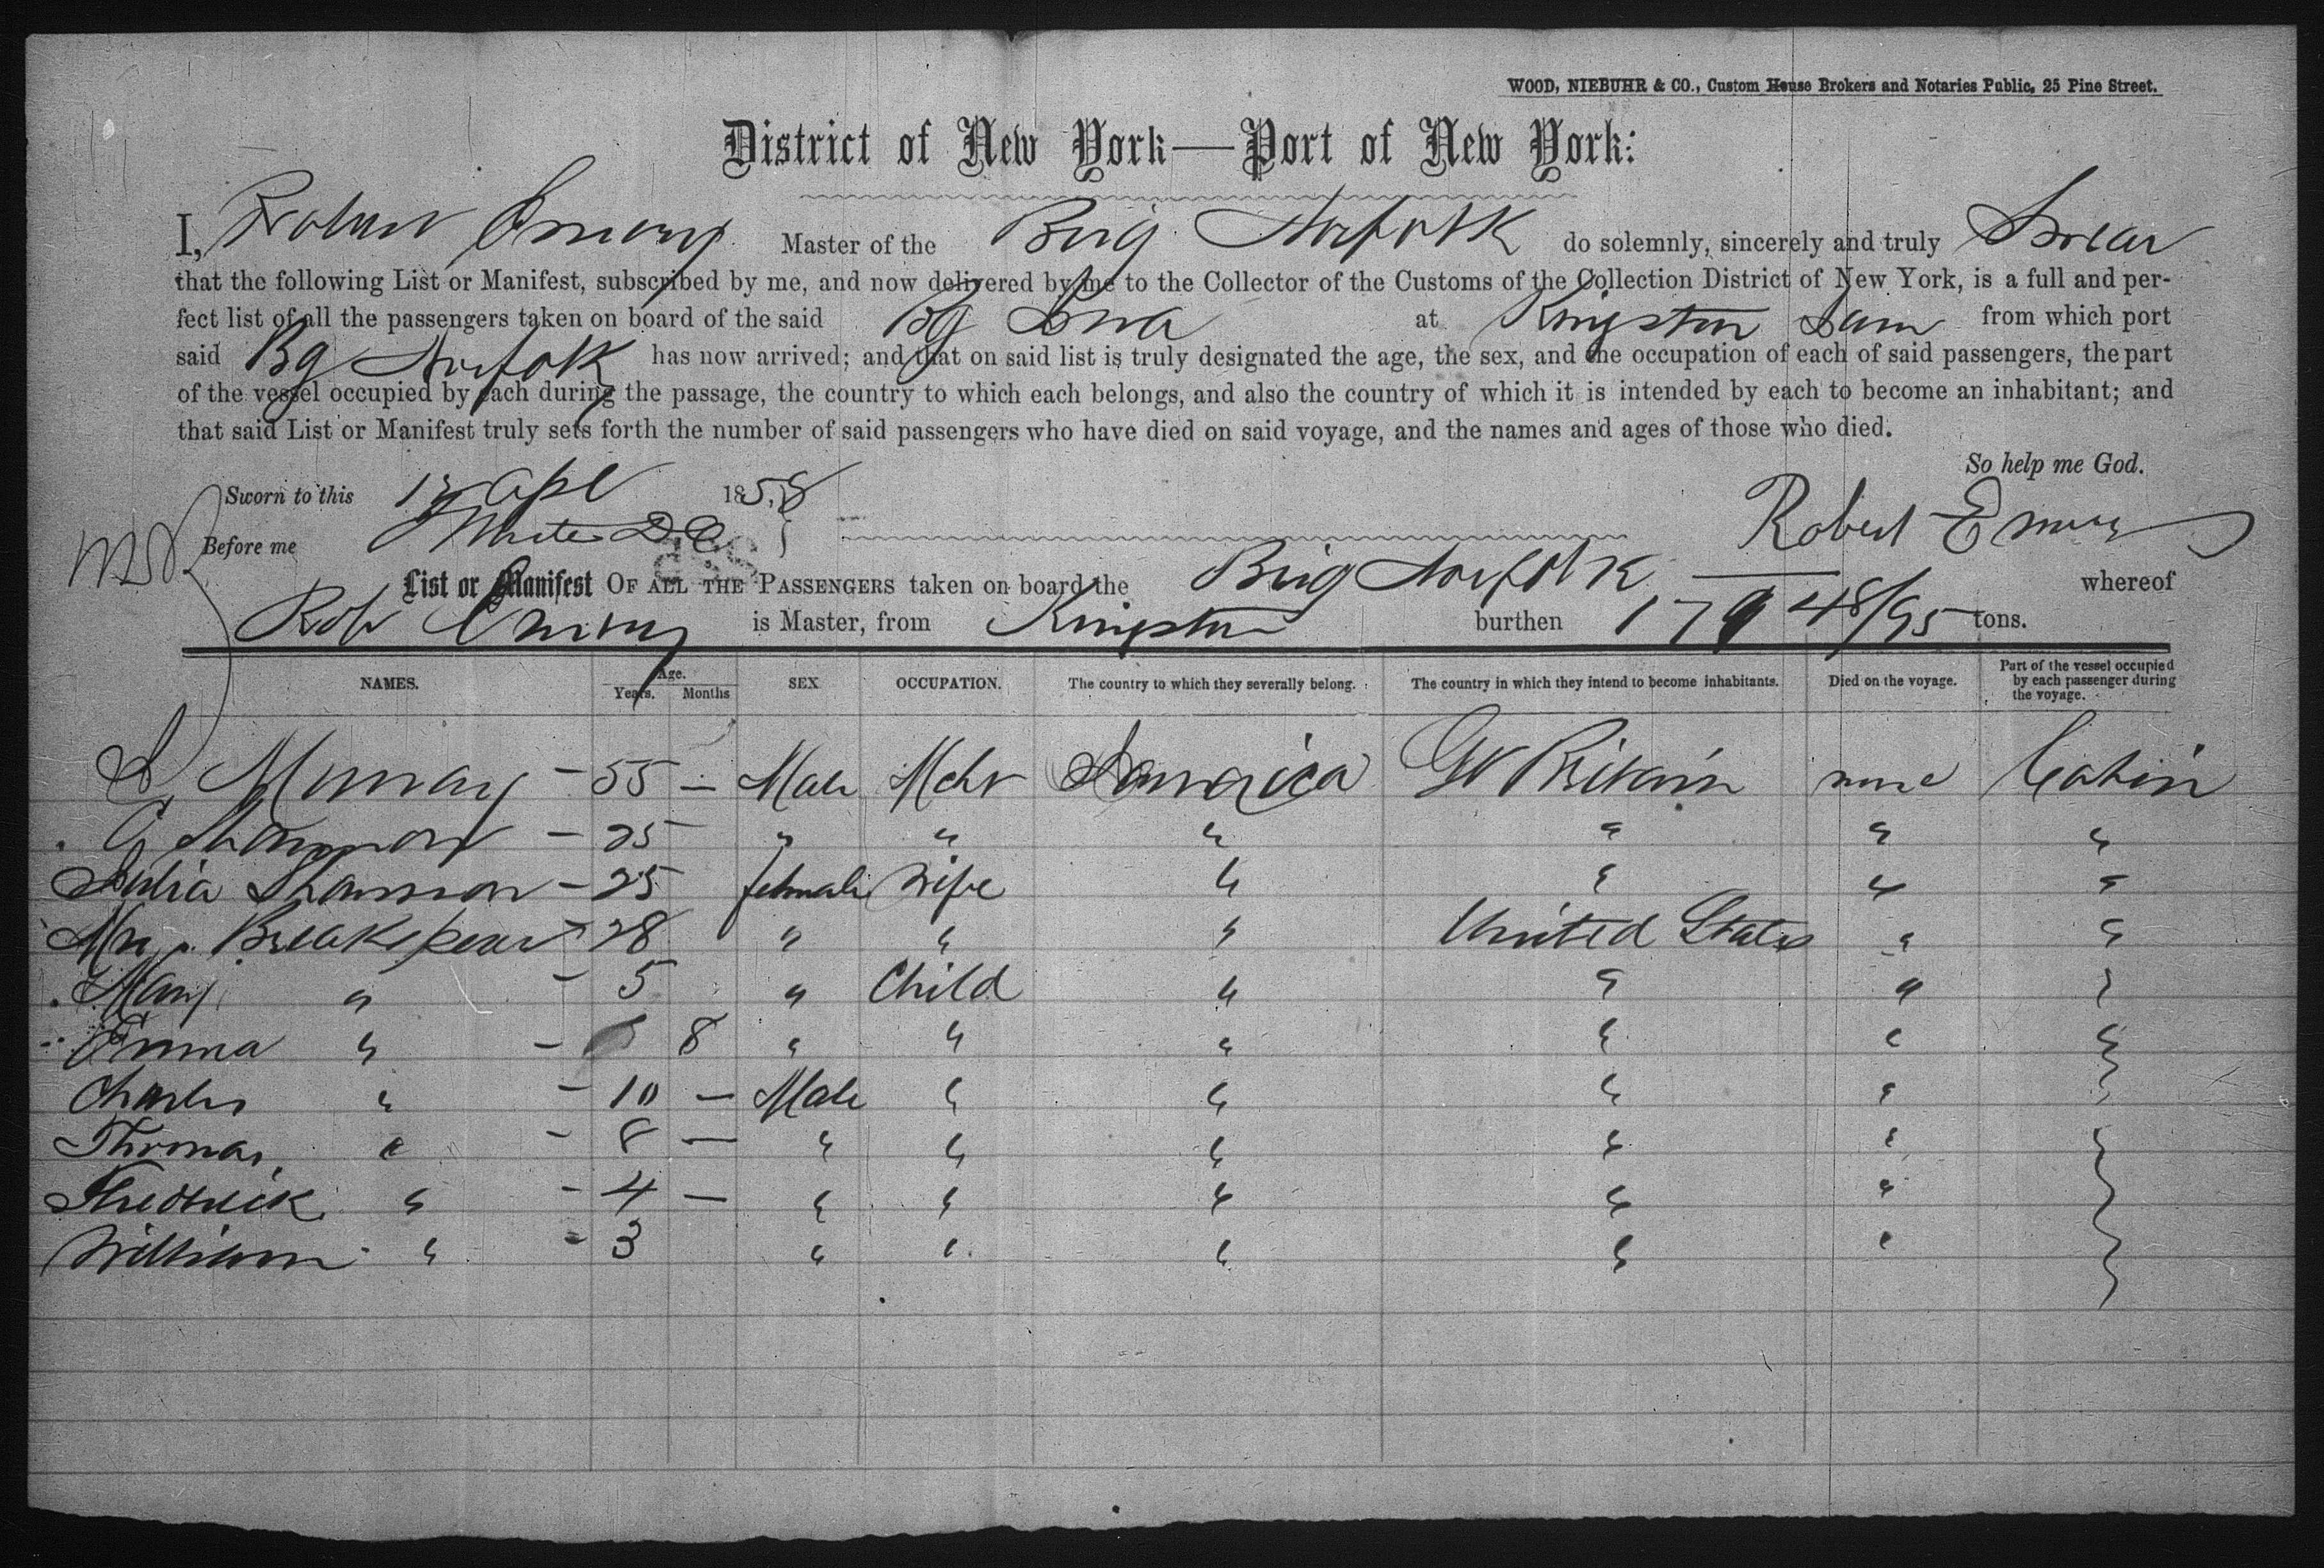 WOOD, NIEBUHR & CO., Custom House Brokers and Notaries Public, 25 Pine Street.
District of New York—Port of New York:
I, Robert Emery Master of the Brig Norfolk do solemnly, sincerely and truly Swear
that the following List or Manifest, subscribed by me, and now delivered by me to the Collector of the Customs of the Collection District of New York, is a full and per-
fect list of all the passengers taken on board of the said Bg at Kingston Jam from which port
said Bg Norfolk has now arrived; and that on said list is truly designated the age, the sex, and the occupation of each of said passengers, the part
of the vessel occupied by each during the passage, the country to which each belongs, and also the country of which it is intended by each to become an inhabitant; and
that said List or Manifest truly sets forth the number of said passengers who have died on said voyage, and the names and ages of those who died.
So help me God.
Sworn to this Apl 1858
Before me Robert Emery
List or Manifest OF ALL THE PASSENGERS taken on board the Brig Norfolk whereof
Robt Emery is Master, from Kingston burthen 179 48/95 tons.
NAMES. Age. Years. Months SEX OCCUPATION. The country to which they severally belong. The country in which they intend to become inhabitants. Died on the voyage. Part of the vessel occupied by each passenger during the voyage.
Murray - 55 - Male Mcht Jamaica Gt Britain none Cabin
Shannon - 25 - " " " " " "
Julia Shannon - 25 female Wife " " " "
Mrs. Breakspear - 28 " " " United States " "
Mary " - 5 " Child " " "
Emma " - 8 " " " " " "
Charles " - 10 - Male " " " "
Thomas " - 8 - " " " " "
Fredrick " - 4 - " " " " "
William " - 3 " " " " "